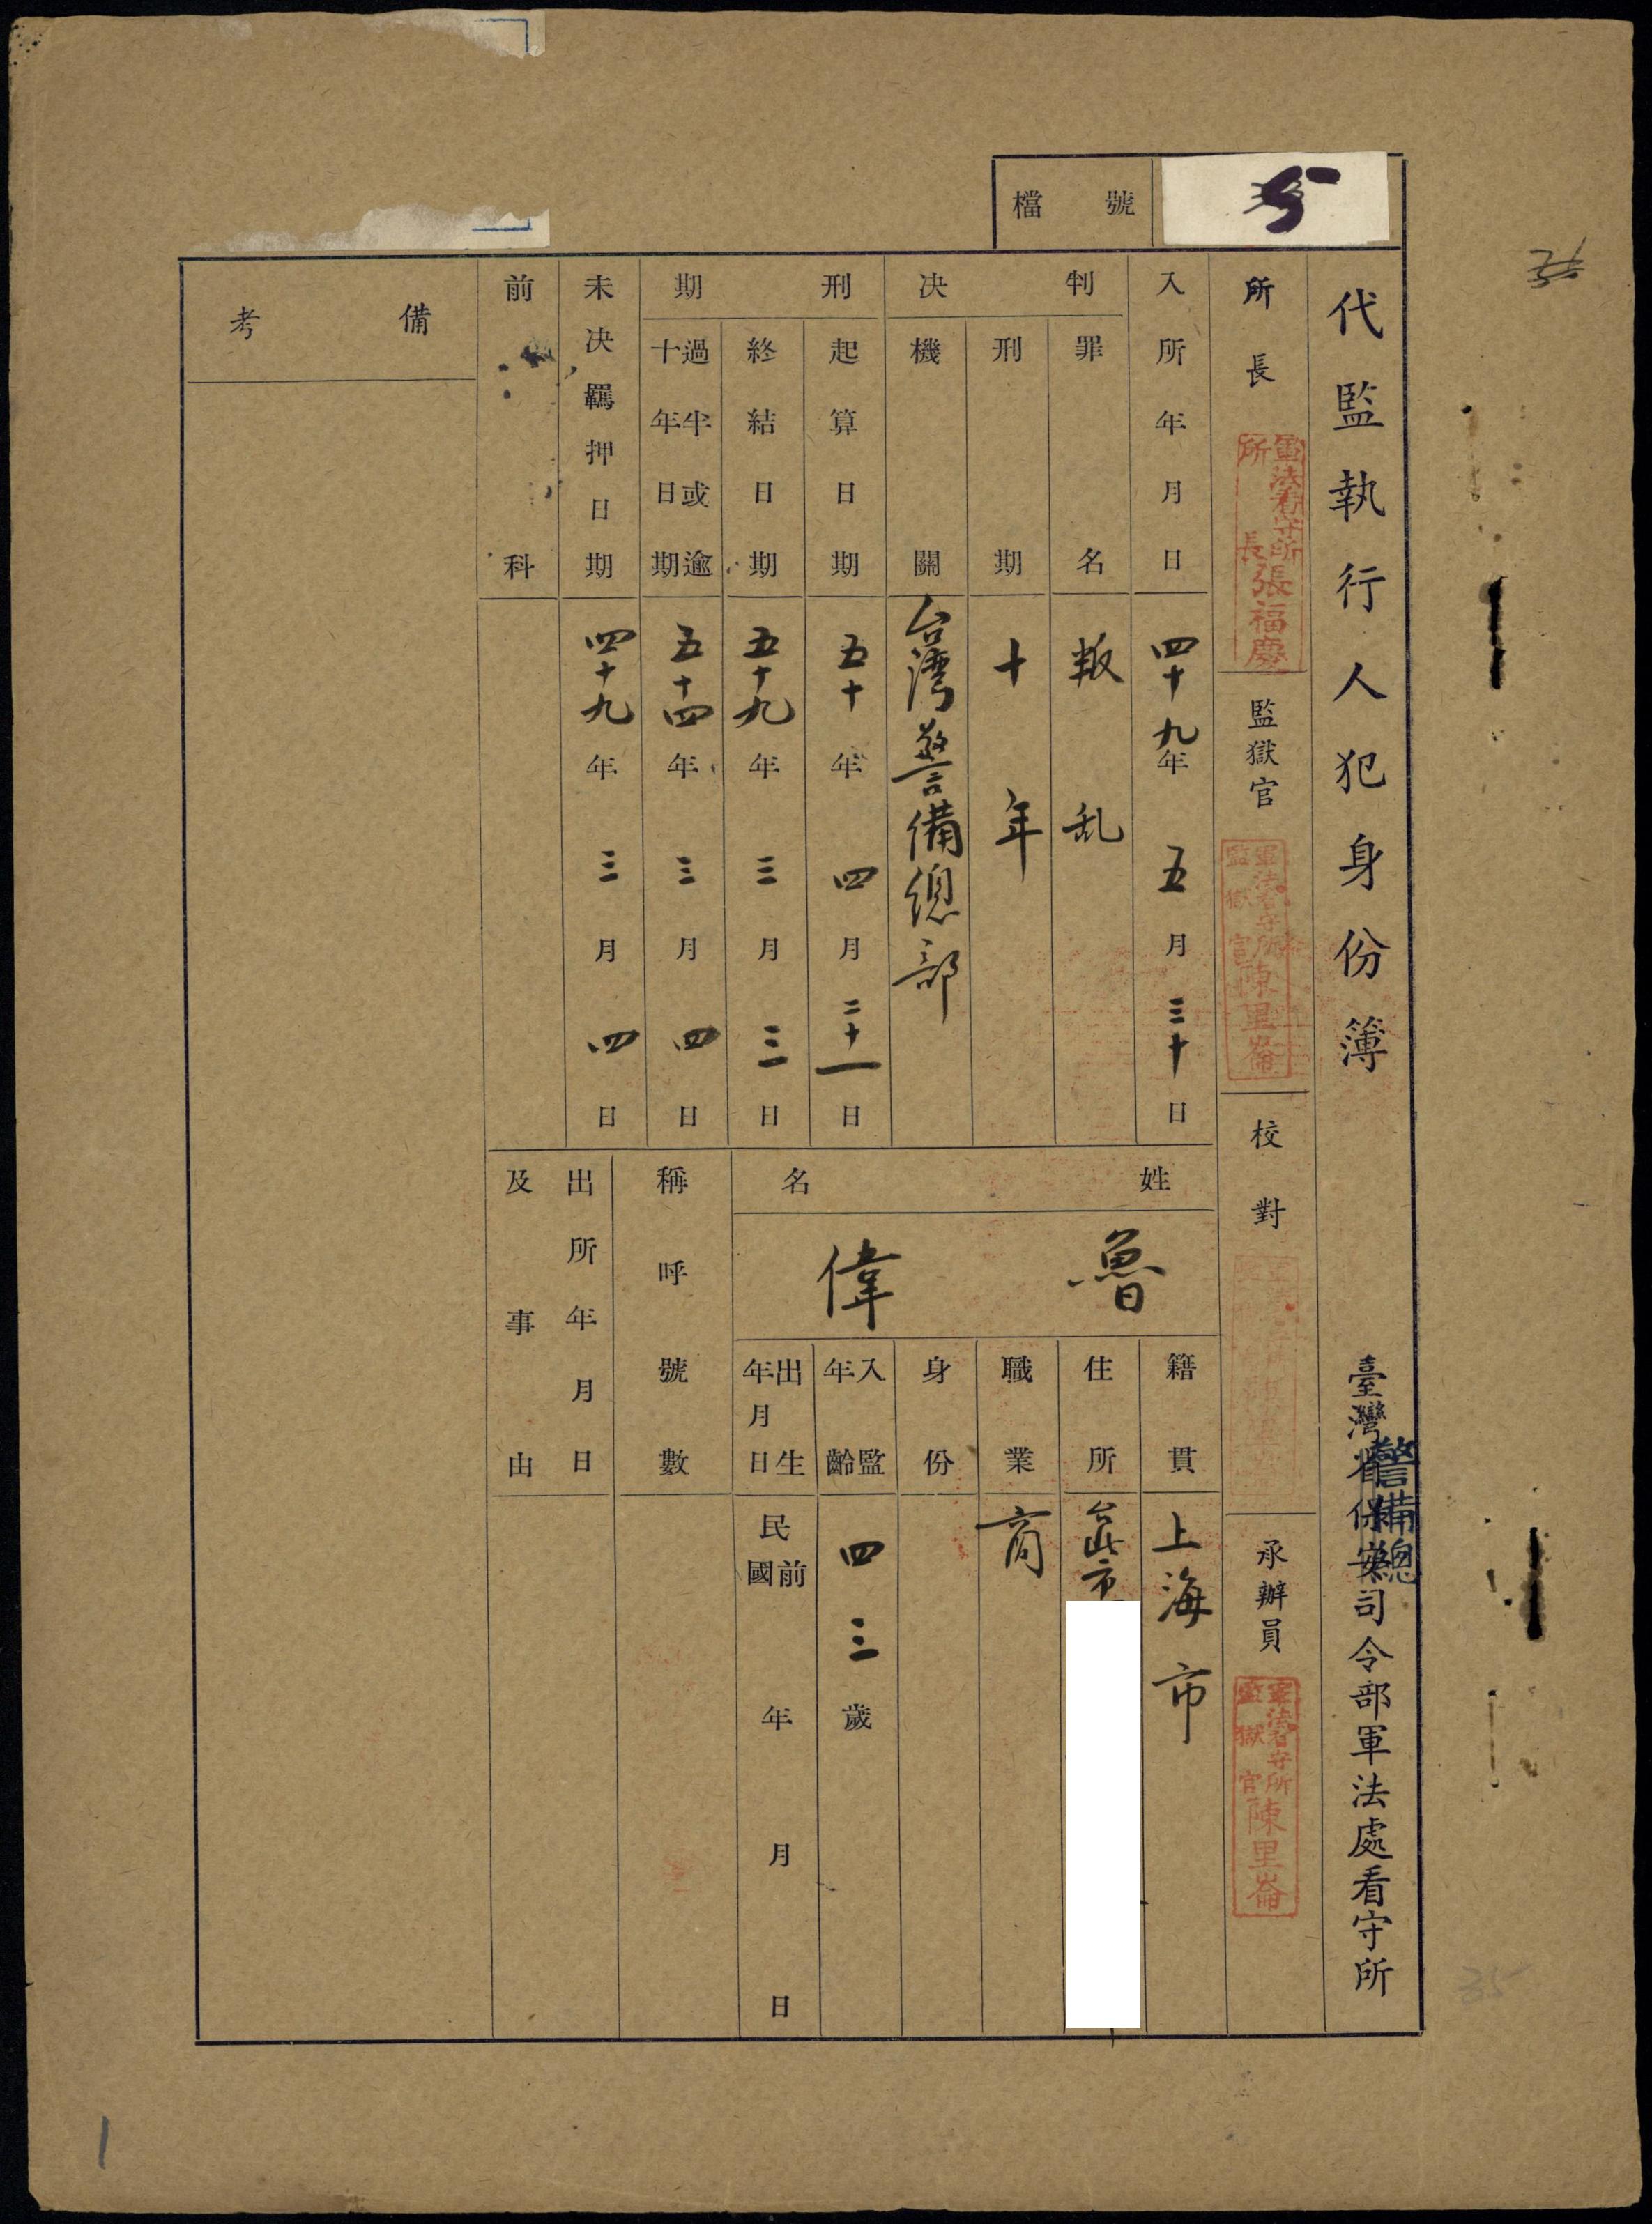 檔號
代監執行人犯身份簿
臺灣省保安司令部軍法處看守所
警備總
所長
軍法看守所
所長
張福慶
監獄官
軍法看守所
監獄官
陳里崙
校對
承辦員
軍法看守所
監獄官
陳里崙
入所年月日
四十九年五月三十日
判決
罪名
叛乱
刑期
十年
機關
台湾警備總部
刑期
起算日期
五十年四月二十一日
終結日期
五十九年三月三日
過半或逾
十年日期
五十四年三月四日
未決羈押日期
四十九年三月四日
前科
備考
姓名
魯偉
籍貫
上海市
住所
台北市
職業
商
身份
入監
年齡
四三歲
出生
年月日
民國前年月日
稱呼號數
出所年月日
及事由
35
1